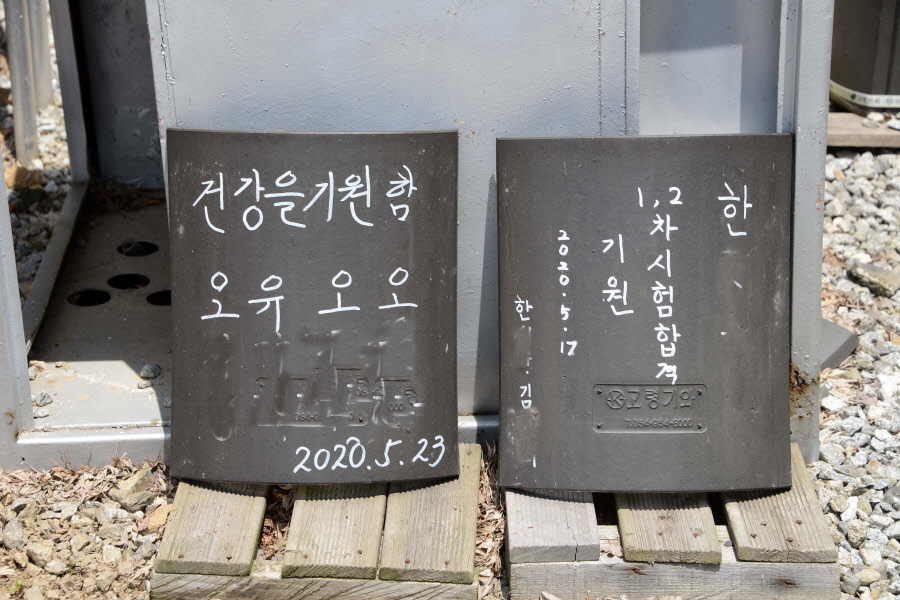 건강을기원함
오유 오오
2020.5.23
한
1,2차시험합격
기원
2020.5.17
한 김
고령기와
T.054-954-8000